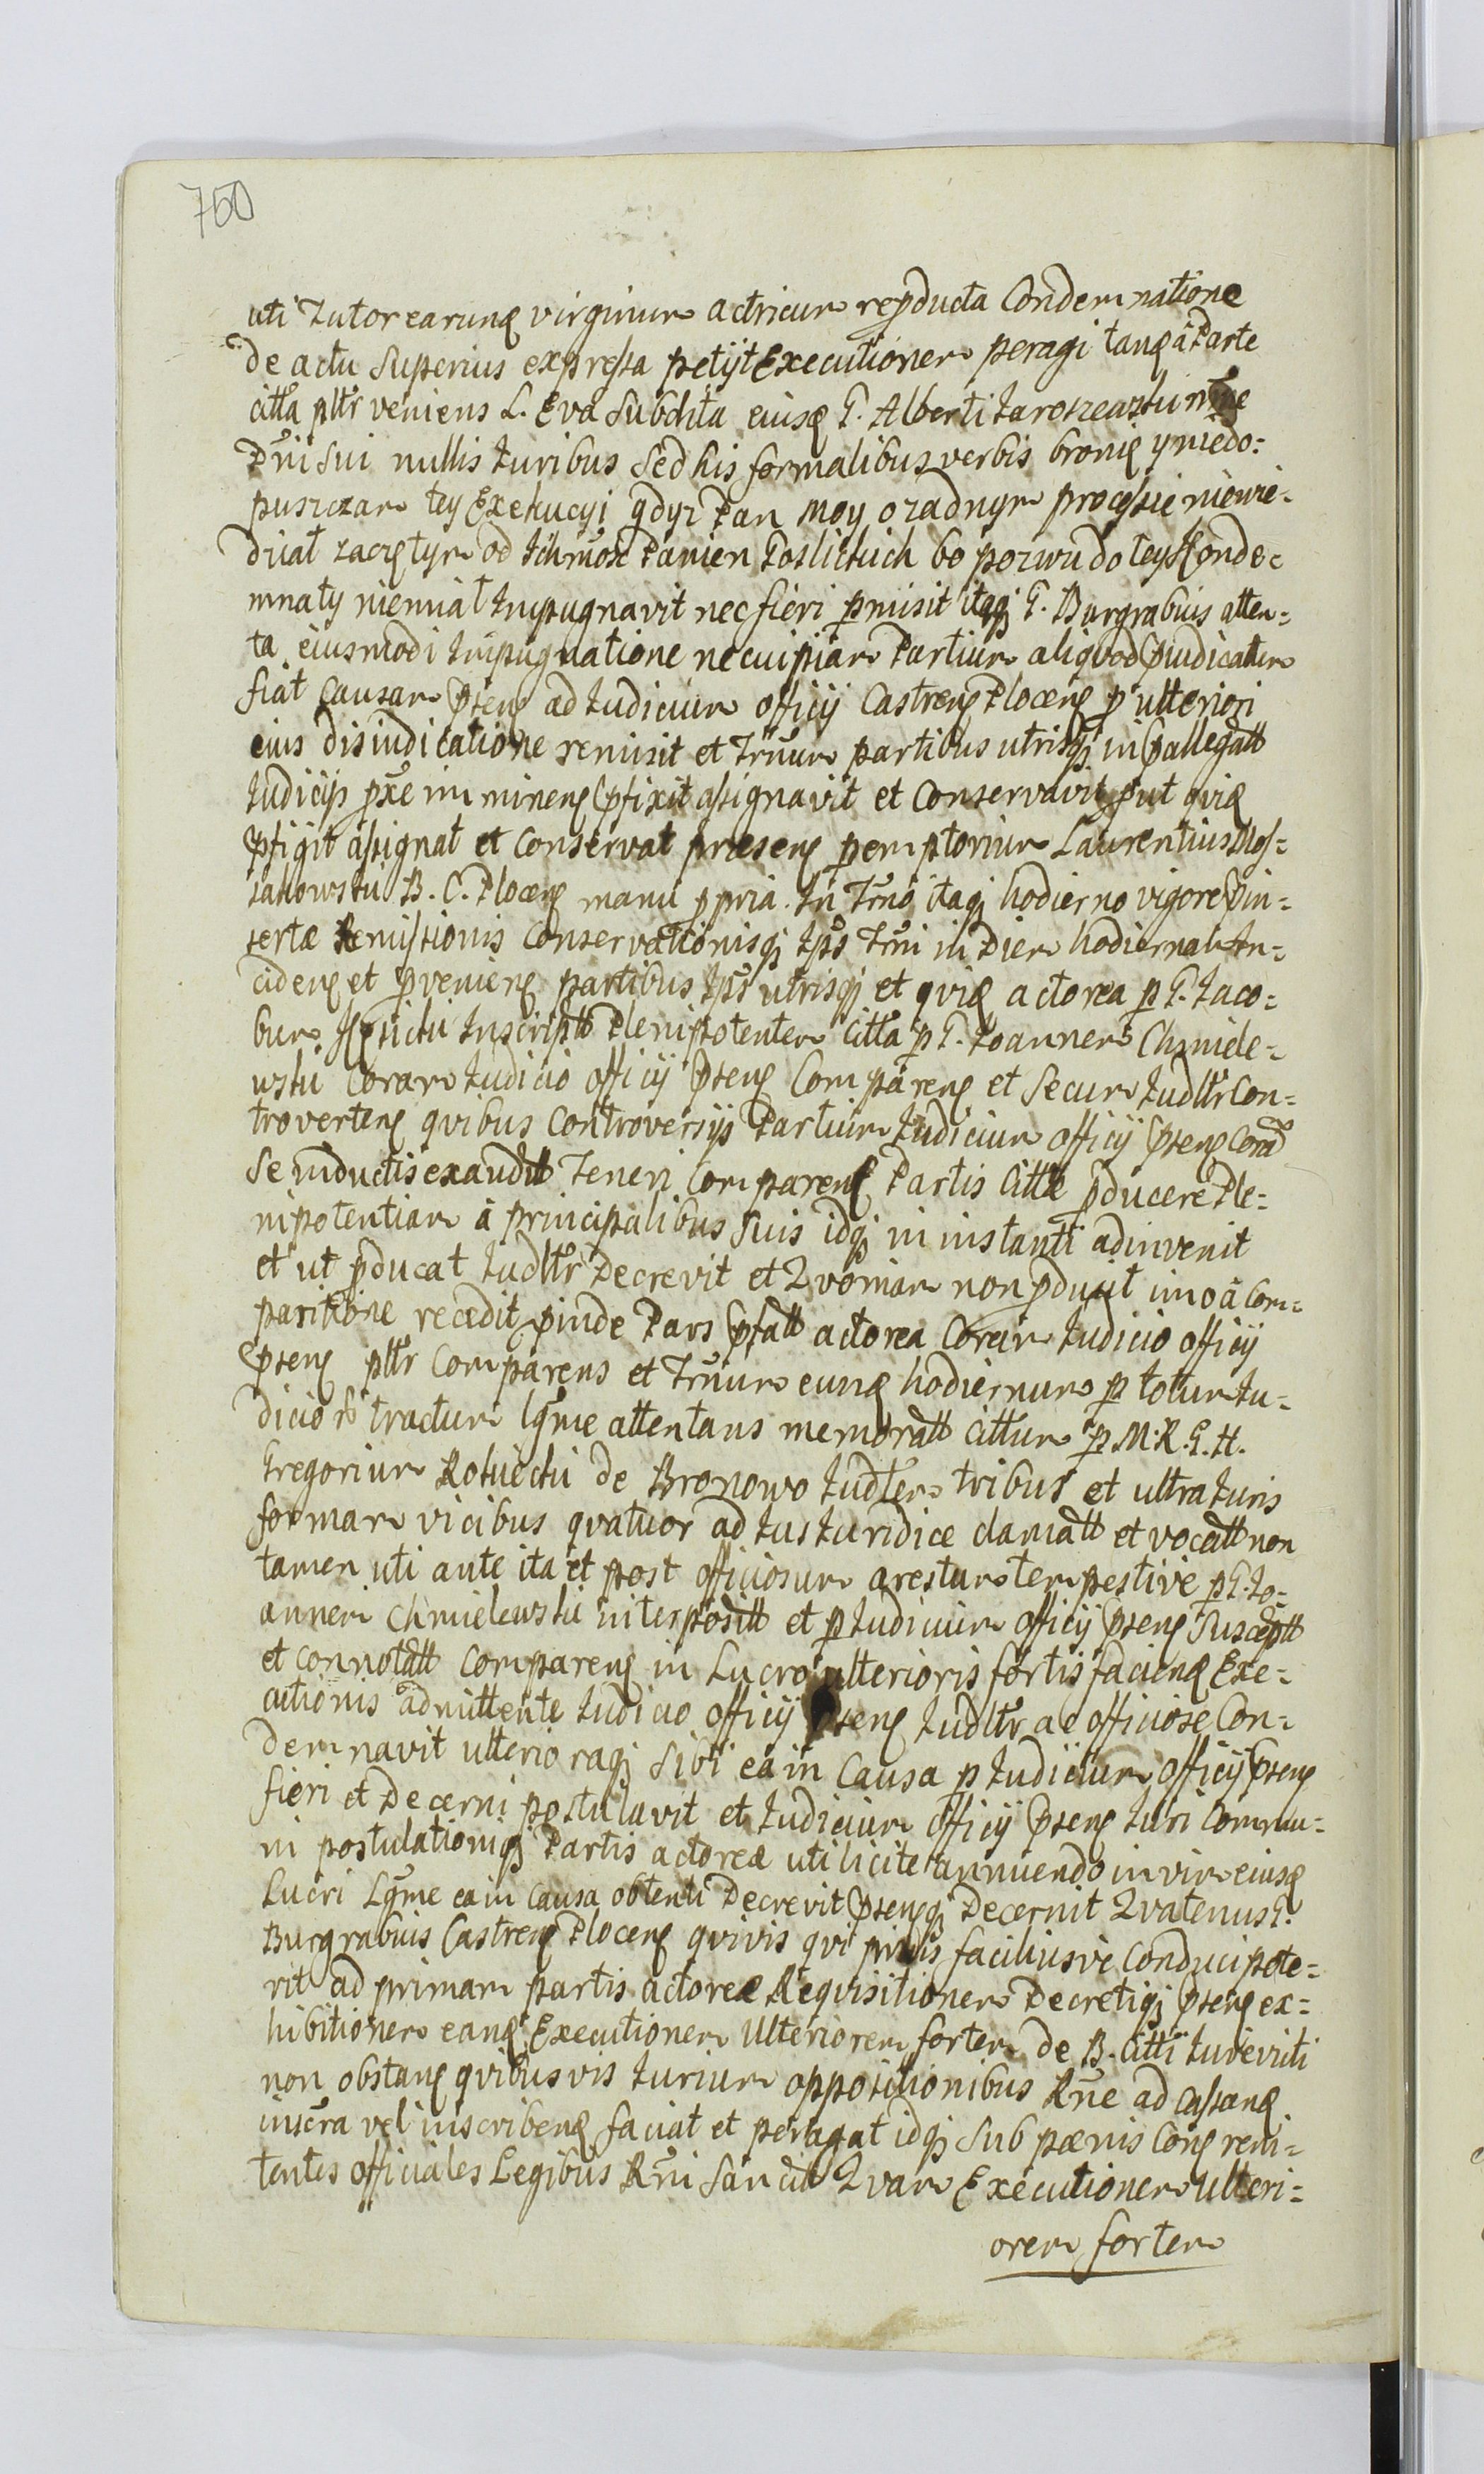 750
uti Tutor earunq virginum actricum reproducta Condemnatione
de actu Superius expressa petijt Executionem peragi tanq â Parte
citta pltr veniens L. Eva Subdita eiusq G. Alberti Jaroszewski nne
Dni Sui nullis Juribus Sed his formalibus verbis bronię y niedo=
puszczam tey Exekucyi gdyz Pan Moy o zadnym processie niewie=
dział zaczętym od Ichmosc Panien Goslickich bo pozwu do tey Conde=
mnaty niemiał Impugnavit nec fieri pmisit itaqj G. Burgrabius atten=
ta eiusmodi Impugnatione ne cuipiam Partium aliqvod Pjudicatum
fiat Causam Psenq ad Judicium officij Castrenq Plocenq p ulteriori
eius disiudicatione remisit et Trnum partibus utrisqj in Pallegatt
Judicijs pxe imminenq Pfixit assignavit et Conservavit put qviq
Pfigit assignat et Conservat præsenq peremptorium Laurentius Mos=
sakowski B. C. Plocenq manu ppria. In Trno itaqj hodierno vigore Pin=
sertæ Remissionis Conservationisqj Ips Trni in Diem hodiernam In=
cidenq et pvenienq partibus Ips utrisqj et qviq actorea p G. Jaco=
bum Inscriptt Plenipotentem Citta p G. Joannem Chmiele=
wski Coram Judicio officij Psenq Comparenq et Secum Judltr Con=
trovertenq qvibus Controversijs Partium Judicium officij Psenq Cora
Se inductis exauditt Teneri Comparenq Partis Cittæ pducere Ple=
nipotentiam â principalibus Suis idqj in instanti adinvenit
et ut pducat Judltr Decrevit et Qvoniam non pducit imo â Com=
paritione recedit pinde Pars Pfatt actorea Coram Judicio officij
Psenq pltr Comparens et Trnum eunq hodiernum p totum Ju=
dicio tractum lgme attentans memoratt Cittum p M. R. G. H.
Gregorium Rokicki de Bronowo Judlem tribus et ultra Juris
formam vicibus qvatuor ad Jus Juridice clamatt et vocatt non
tamen uti ante ita et post officiosum arestum tempestive p G. Jo=
annem Chmielewski interpositt et p Judicium officij Psenq Susceptt
et connotatt Comparenq in Lucro ulterioris fortis facienq Exe=
cutionis admittente Judicio officij Psenq Judltr ac officiose Con=
demnavit ulterioraqj Sibi ea in Causa p Judicium officij Psenq
fieri et Decerni postulavit et Judicium officij Psenq Juri Commu=
ni postulationiqj Partis actoreæ uti licite annuendo in vim eiusq
Lucri Lgme ea in Causa obtenti Decrevit Psenqj Decernit Qvatenus G.
Burgrabius Castrenq Plocenq qvivis qvi prius faciliusve Conduci pote=
rit ad primam partis actoreæ Reqvisitionem Decretiqj Psenq ex=
hibitionem eanq Executionem Ulteriorem fortem de B. Citti Jurevicti
non obstanq qvibusvis Jurium oppositionibus Rne ad Cassanq
inscra vel inscribenq faciat et peragat idqj Sub pænis Conq reni=
tentes officiales Legibus Rni Sancitt Qvam Executionem Ulteri=
orem fortem